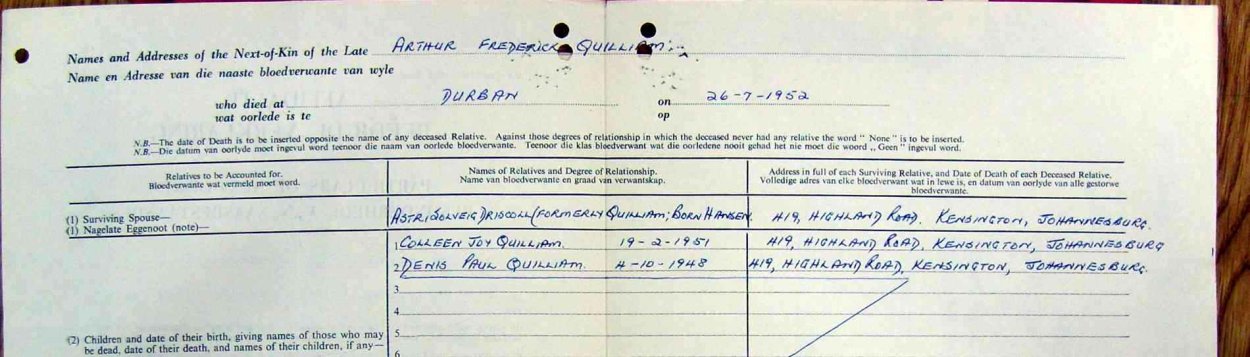 Names and Addresses of the Next-of-Kin of the Late ARTHUR FREDERICK QUILLIAM.
Name en Adresse van die naaste bloedverwante van wyle
who died at DURBAN on 26-7-1952
wat oorlede is te op
N.B.—The date of Death is to be inserted opposite the name of any deceased Relative. Against those degrees of relationship in which the deceased never had any relative the word "None" is to be inserted.
N.B.—Die datum van oorlyde moet ingevul word teenoor die naam van oorlede bloedverwante. Teenoor die klas bloedverwant wat die oorledene nooit gehad het nie moet die woord „Geen" ingevul word.
Relatives to be Accounted for.
Bloedverwante wat vermeld moet word.
Names of Relatives and Degree of Relationship.
Name van bloedverwante en graad van verwantskap.
Address in full of each Surviving Relative, and Date of Death of each Deceased Relative.
Volledige adres van elke bloedverwant wat in lewe is, en datum van oorlyde van alle gestorwe
bloedverwante.
(1) Surviving Spouse— ASTRI SOLVEIG DRISCOLL (FORMERLY QUILLIAM; BORN HANSEN. 419, HIGHLAND ROAD. KENSINGTON, JOHANNESBURG.
(1) Nagelate Eggenoot (note)—
1 COLLEEN JOY QUILLIAM. 19-2-1951 419, HIGHLAND ROAD, KENSINGTON, JOHANNESBURG
2 DENIS PAUL QUILLIAM. 4-10-1948 419, HIGHLAND ROAD, KENSINGTON, JOHANNESBURG.
3
4
(2) Children and date of their birth, giving names of those who may 5
be dead, date of their death, and names of their children, if any—
6